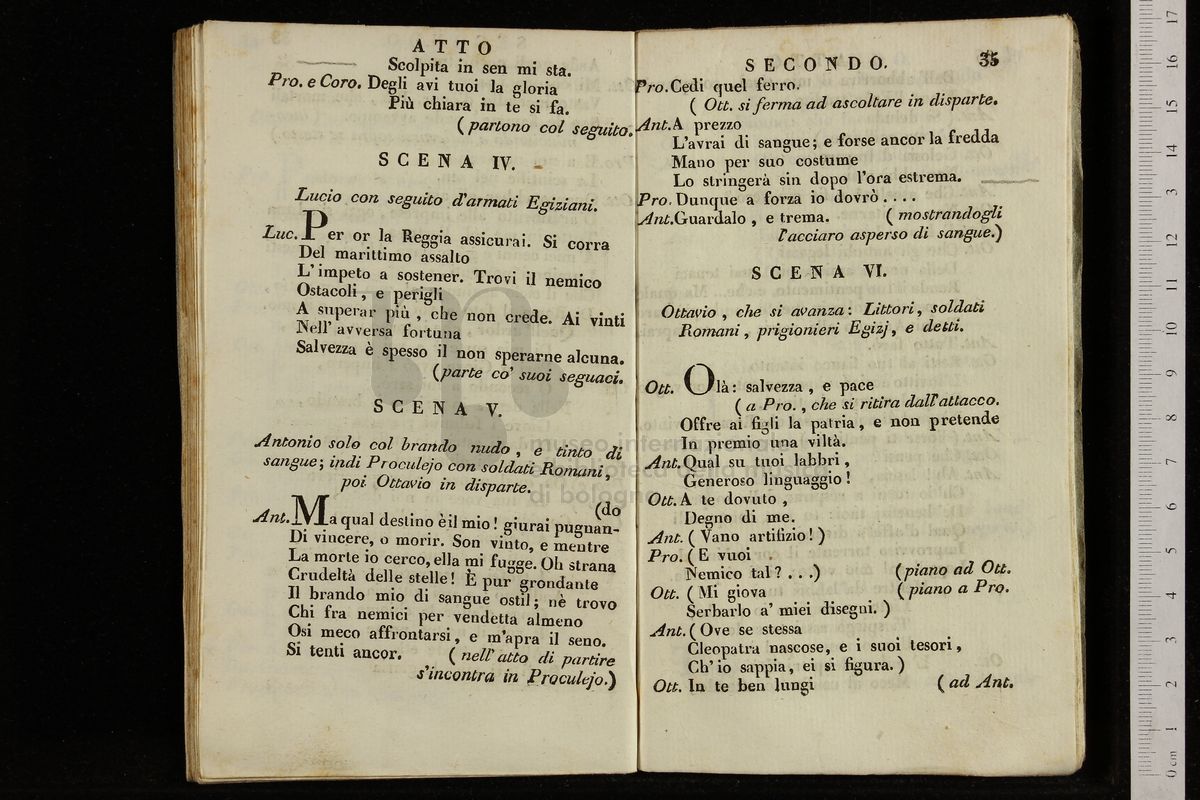 ATTO
Scolpita in sen mi sta.
Pro. e Coro. Degli avi tuoi la gloria
Più chiara in te si fa.
(partono col seguito.
SCENA IV.
Lucio con seguito d'armati Egiziani.
Luc. Per or la Reggia assicurai. Si corra
Del marittimo assalto
L'impeto a sostener. Trovi il nemico
Ostacoli, e perigli
A superar più, che non crede. Ai vinti
Nell' avversa fortuna
Salvezza è spesso il non sperarne alcuna.
(parte co' suoi seguaci.
SCENA V.
Antonio solo col brando nudo, e tinto di
sangue; indi Proculejo con soldati Romani,
poi Ottavio in disparte.
(do
Ant. Ma qual destino è il mio! giurai pugnan-
Di vincere, o morir. Son vinto, e mentre
La morte io cerco, ella mi fugge. Oh strana
Crudeltà delle stelle! È pur grondante
Il brando mio di sangue ostil; nè trovo
Chi fra nemici per vendetta almeno
Osi meco affrontarsi, e m'apra il seno.
Si tenti ancor. (nell' atto di partire
s'incontra in Proculejo.)
SECONDO. 35
Pro. Cedi quel ferro.
( Ott. si ferma ad ascoltare in disparte.
Ant. A prezzo
L'avrai di sangue; e forse ancor la fredda
Mano per suo costume
Lo stringerà sin dopo l'ora estrema.
Pro. Dunque a forza io dovrò....
Ant. Guardalo, e trema. ( mostrandogli
l'acciaro asperso di sangue.)
SCENA VI.
Ottavio, che si avanza: Littori, soldati
Romani, prigionieri Egizj, e detti.
Ott. Olà: salvezza, e pace
( a Pro., che si ritira dall'attacco.
Offre ai figli la patria, e non pretende
In premio una viltà.
Ant. Qual su tuoi labbri,
Generoso linguaggio!
Ott. A te dovuto,
Degno di me.
Ant. ( Vano artifizio! )
Pro. ( E vuoi
Nemico tal? ...) (piano ad Ott.
Ott. ( Mi giova ( piano a Pro.
Serbarlo a' miei disegni. )
Ant. ( Ove se stessa
Cleopatra nascose, e i suoi tesori,
Ch' io sappia, ei si figura. )
Ott. In te ben lungi ( ad Ant.
museo internazionale
biblioteca della musica
di bologna
0 cm 1 2 3 4 5 6 7 8 9 10 11 12 13 14 15 16 17